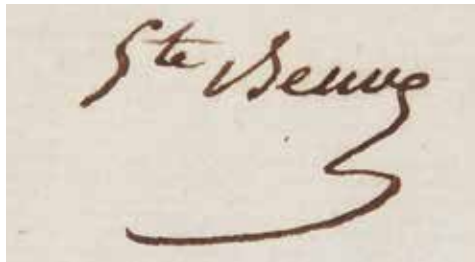 Ste Beuve